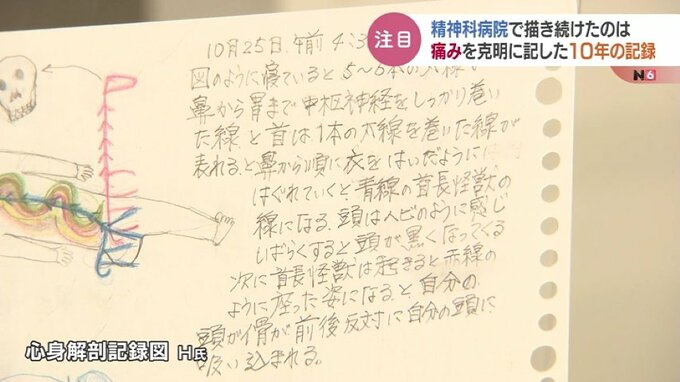 注目
精神科病院で描き続けたのは
痛みを克明に記した10年の記録
N6
10月25日.午前4:3
図のように寝ていると5〜6本の
鼻から胃まで中枢神経をしっかり巻い
た線と首は1本の太線を巻いた線が
表れると鼻から順に衣をはいだように
はぐれていくと青線の首長怪獣の
線になる、頭はヘビのように感じ
しばらくすると頭が黒くなってくる
次に首長怪獣は起きると赤線の
ように座った姿になると自分の
頭が骨が前後反対に自分の頭に
吸い込まれる。
心身解剖記録図 H氏